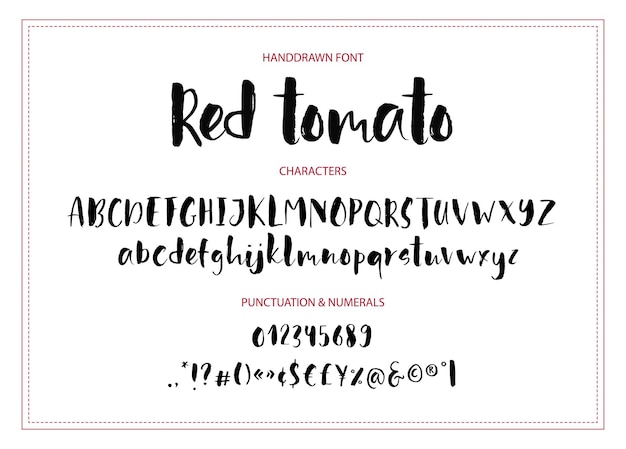 HANDDRAWN FONT
Red tomato
CHARACTERS
ABCDEFGHIJKLMNOPQRSTUVWXYZ
abcdefghijklmnopqrstuvwxyz
PUNCTUATION & NUMERALS
012345689
.,*!?#()«»¢$€£¥%@&©®°|